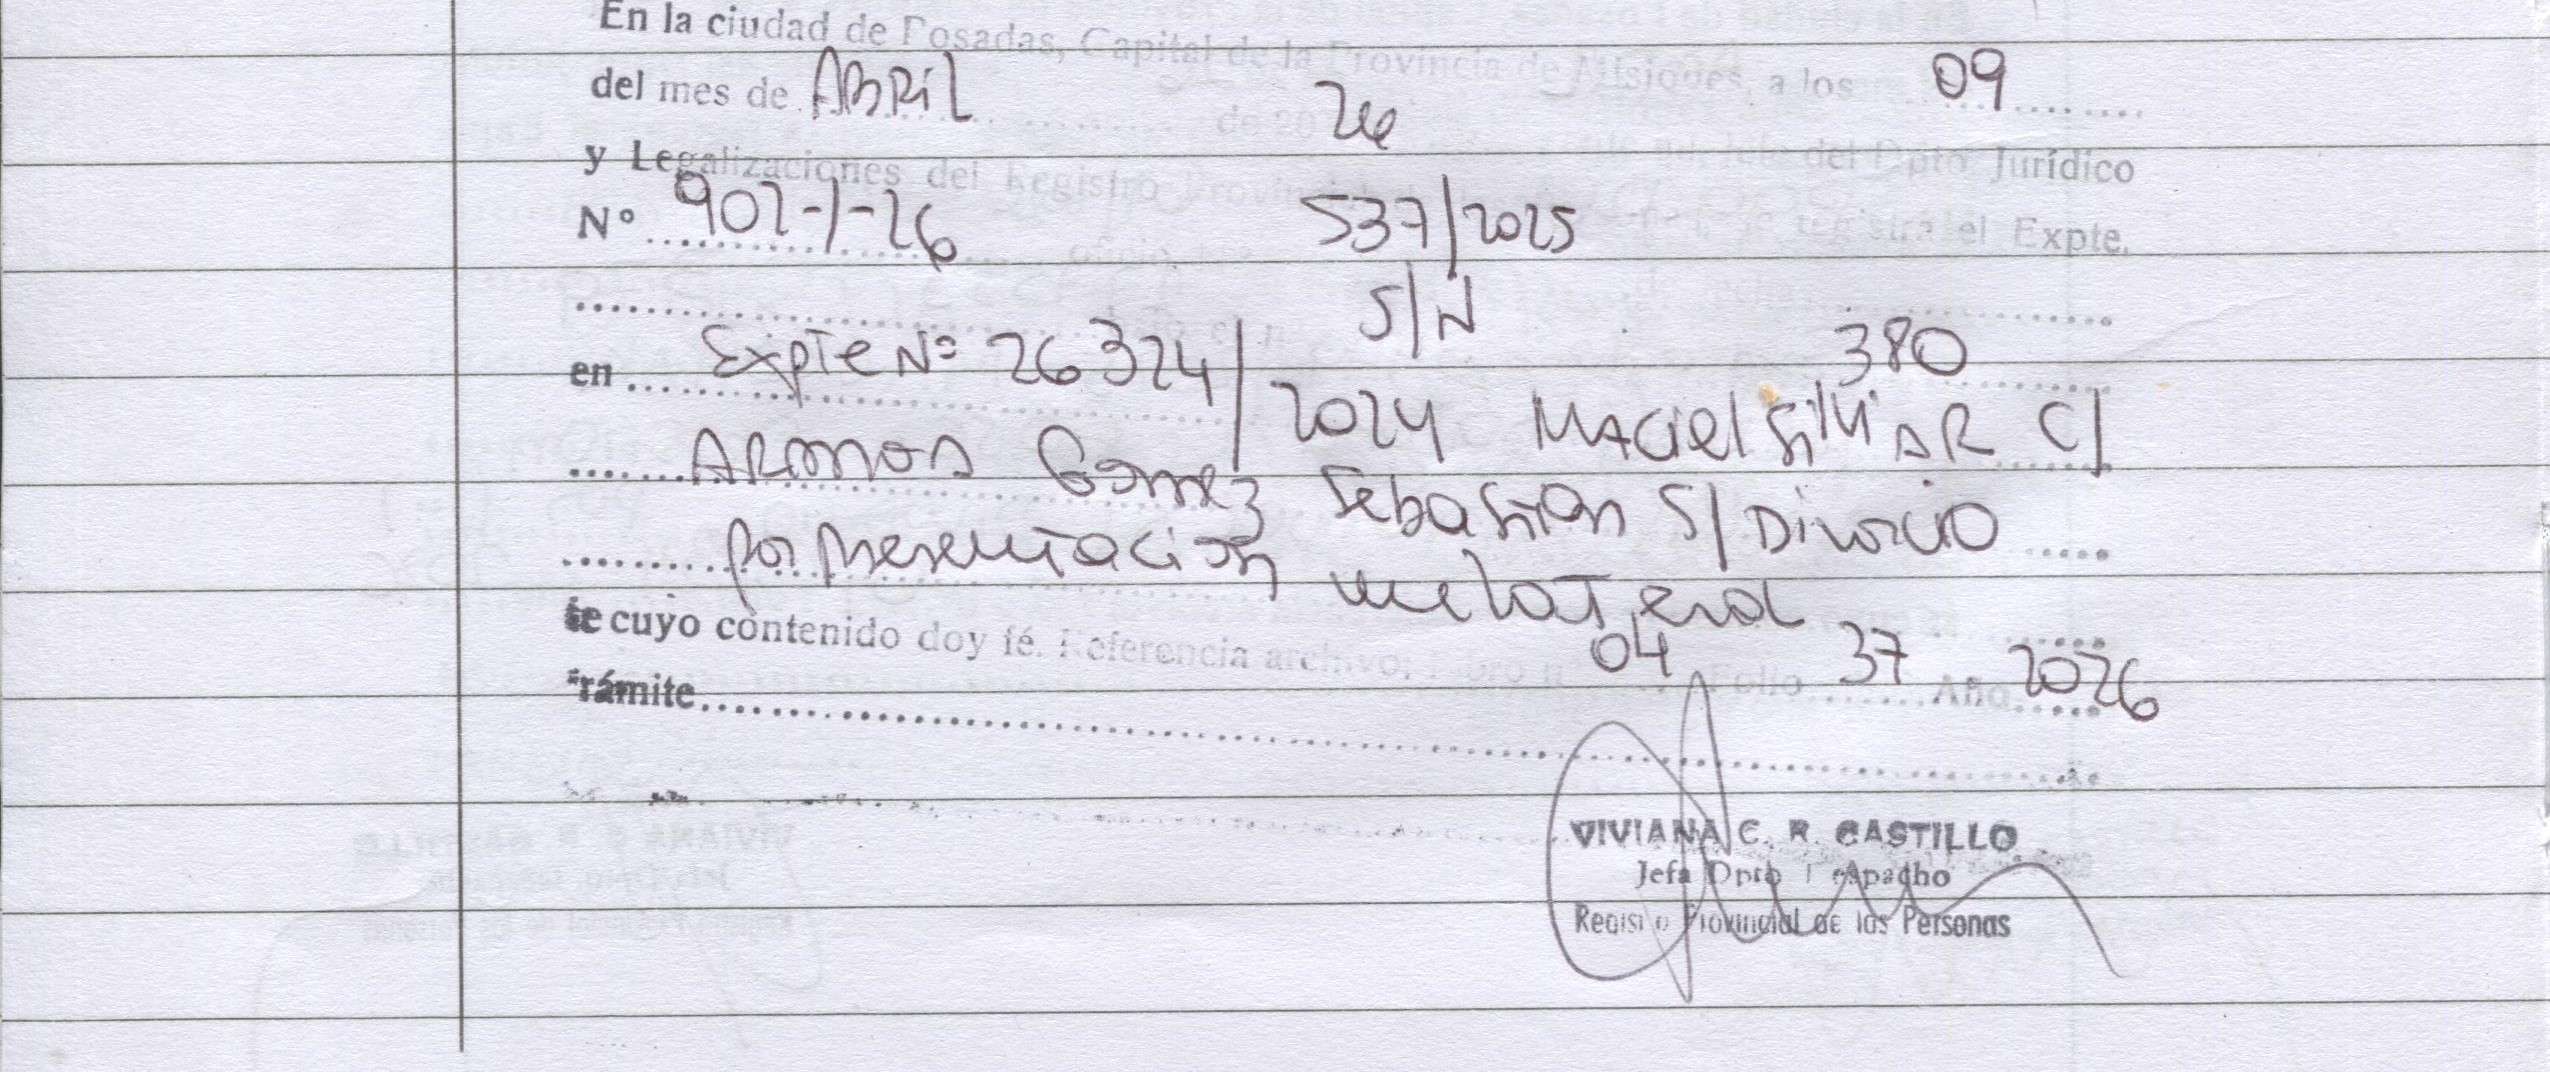 En la ciudad de Posadas, Capital de la Provincia de Misiones, a los 09
del mes de ABRIL de 20 26
y Legalizaciones del Registro Provincial del Dpto Jurídico
Nº 902-1-26 537/2025 registra el Expte.
oficio S/N
en Expte Nº 26324/2024 380
MACIEL C/
ARMOA Gomez Sebastian S/ Divorcio
por presentacion unelateral
de cuyo contenido doy fé. Referencia archivo; Libro nº 04 Folio 37 Año 2026
trámite
VIVIANA C. R. CASTILLO
Jefa Dpto Despacho
Registro Provincial de las Personas